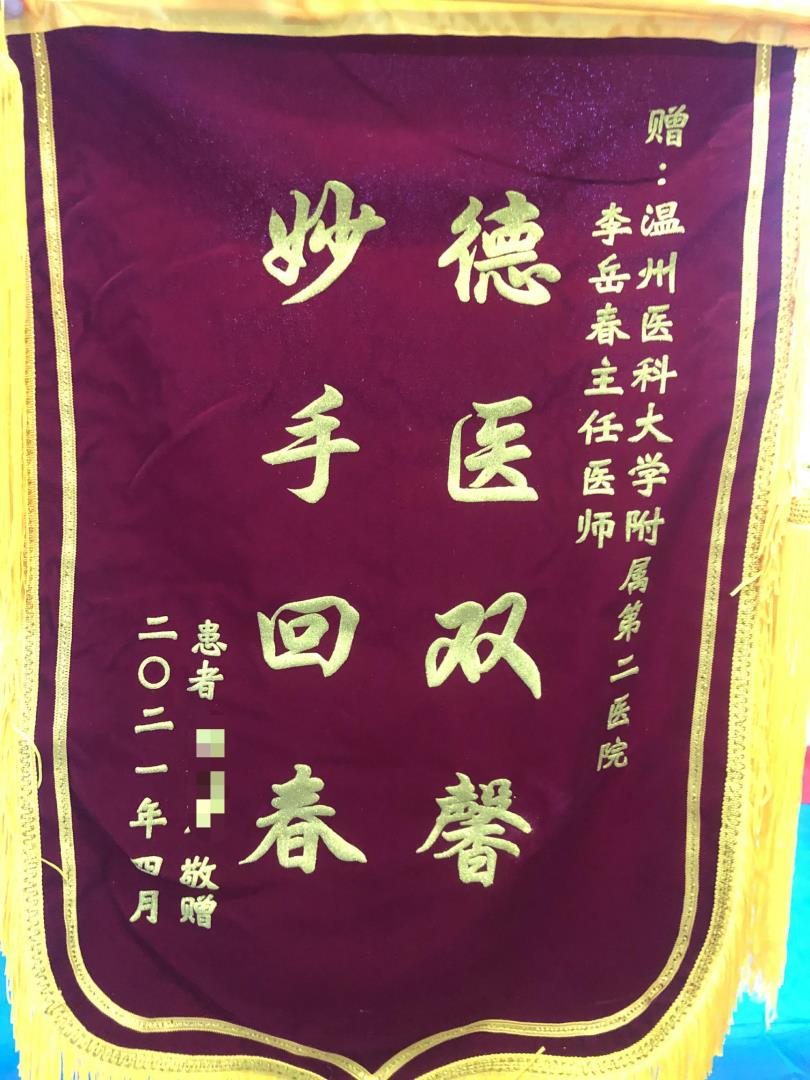 赠：温州医科大学附属第二医院
李岳春主任医师
德医双馨
妙手回春
患者 敬赠
二〇二一年四月